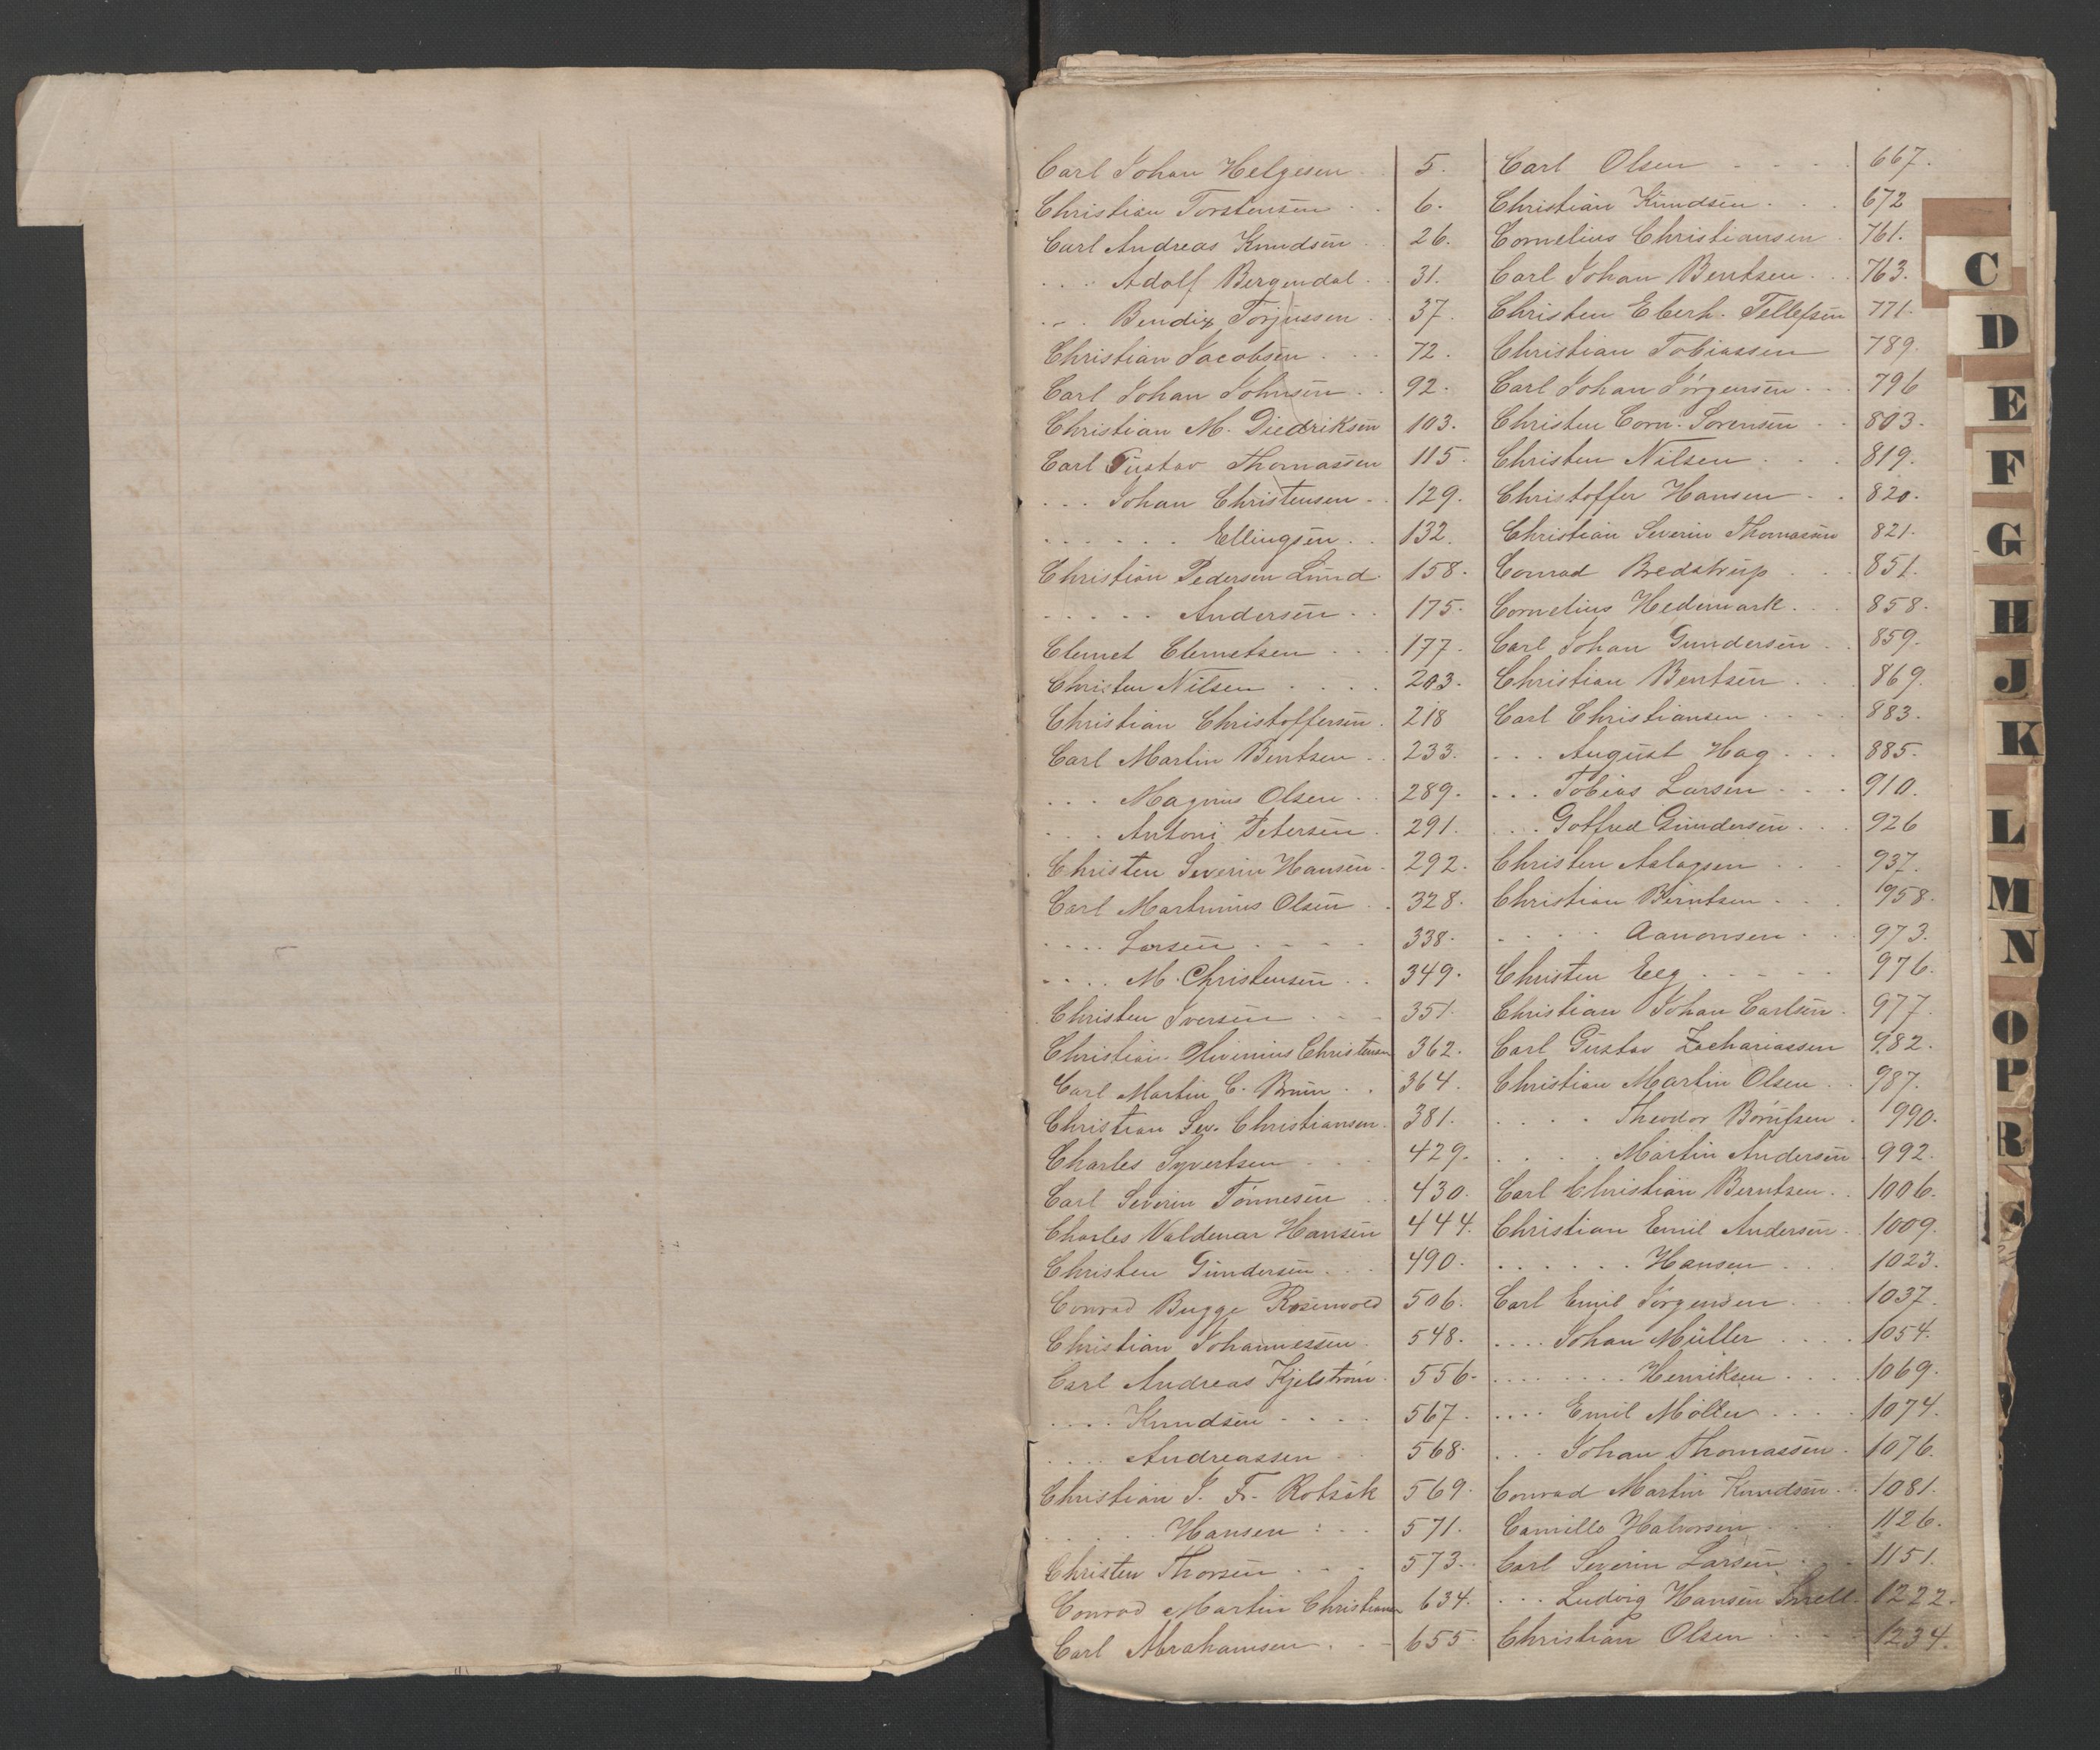 Carl Johan Helgesen . 5.
Christian Torstensen . . 6.
Carl Andreas Knudsen . 26.
. . . . Adolf Bergendal . . 31.
. . . Bendix Torjussen . . 37.
Christian Jacobsen . . . 72.
Carl Johan Johnsen . . 92.
Christian M. Diedriksen 103.
Carl Gustav Thomassen 115.
. . . Johan Christensen . . 129.
. . . . . . Ellingsen . . 132.
Christian Pedersen Lund . 158.
. . . . . Andersen . . 175.
Clemet Clemetsen . . . 177.
Christen Nilsen . . . . 203.
Christian Christoffersen . 218
Carl Martin Bentsen . . 233.
. . . Magnus Olsen . . 289.
. . . Antoni Petersen . 291.
Christen Severin Hansen . 292.
Carl Martinius Olsen . . 328.
. . . . Larsen . . . . 338.
. . . . M. Christensen . . 349.
Christen Iversen . . . 351.
Christian Christensen 362.
Carl Martin C. Bruun . . 364.
Christian Sev. Christiansen . 381.
Charles Syvertsen . . . 429.
Carl Severin Tönnesen . . 430.
Charles Valdemar Hansen 444.
Christen Gundersen . . . 490.
Conrad Bugge Rosenvold 506.
Christian Johannessen . 548.
Carl Andreas Kjelström . 556.
. . . . Knudsen . . . . 567.
. . . . Andreassen . . 568.
Christian J. Fr. Rotsök 569.
. . . . . Hansen . . . 571.
Christen Thorsen . . . 573.
Conrad Martin Christiansen 634.
Carl Abrahamsen . . . 655.
Carl Olsen . . . . 667.
Christian Knudsen . . . 672
Cornelius Christiansen . 761.
Carl Johan Bentsen . . . 763.
Christen Eberh. Tellefsen 771.
Christian Tobiassen 789.
Carl Johan Jörgensen . . 796
Christen Corn. Sorensen . . 803.
Christen Nilsen . . . 819.
Christoffer Hansen . . 820.
Christian Severin Thomassen 821.
Conrad Bredstrup . . . 851.
Cornelius Hedemark . . . 858.
Carl Johan Gundersen . . 859.
Christian Bentsen . . . 869.
Carl Christiansen . . . . 883.
. . . August Hag . . . 885.
. . . Tobias Larsen . . . 910.
. . . Gotfred Gundersen . . . 926
Christen Aslagsen . . . 937.
Christian Berntsen . . . 958.
. . . . . Aanonsen . . . 973.
Christen Eeg . . . . . 976.
Christian Johan Carlsen . 977.
Carl Gustav Zachariassen 982.
Christian Martin Olsen . . 987.
. . . . Theodor Börufsen . 990.
. . . . Martin Andersen 992.
Carl Christian Berntsen . . 1006.
Christian Emil Andersen . 1009.
. . . . . . Hansen . . . 1023.
Carl Emil Jörgensen . . . 1037.
. . . . Johan Müller . . . . 1054.
. . . . . . . . Henriksen . . . . 1069.
. . . . Emil Möller . . . . 1074.
. . . Johan Thomassen . 1076.
Conrad Martin Knudsen . . 1081.
Camillo Halvorsen . . . 1126.
Carl Severin Larsen . . . 1151.
. . . Ludvig Hansen 1222.
Christian Olsen . . . . 1234.
C
D
E
F
G
H
J
K
L
M
N
O
P
R
S